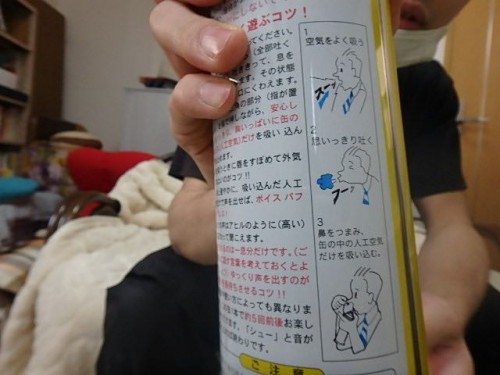 遊ぶコツ！
てください。
（全部吐く
きって、息を
ます。その状態
口にくわえます。
の部分（指が置
しながら、安心し
、胸いっぱいに缶の
工空気）だけを吸い込ん
ときに唇をすぼめて外気
いのがコツ!!
やかに、吸い込んだ人工
で声を出せば、ボイスパフ
はアヒルのように（高い）
て聞こえます。
のは一息分だけです。（ご
言葉を考えておくとよ
ゆっくり声を出すのが
させるコツ!!
い方によっても異なりま
本で約5回前後お楽し
ます。「シュー」と音が
終わりです。
ご注意
1
空気をよく吸う
スーッ
2
思いっきり吐く
フーッ
3
鼻をつまみ、
缶の中の人工空気
だけを吸い込む。